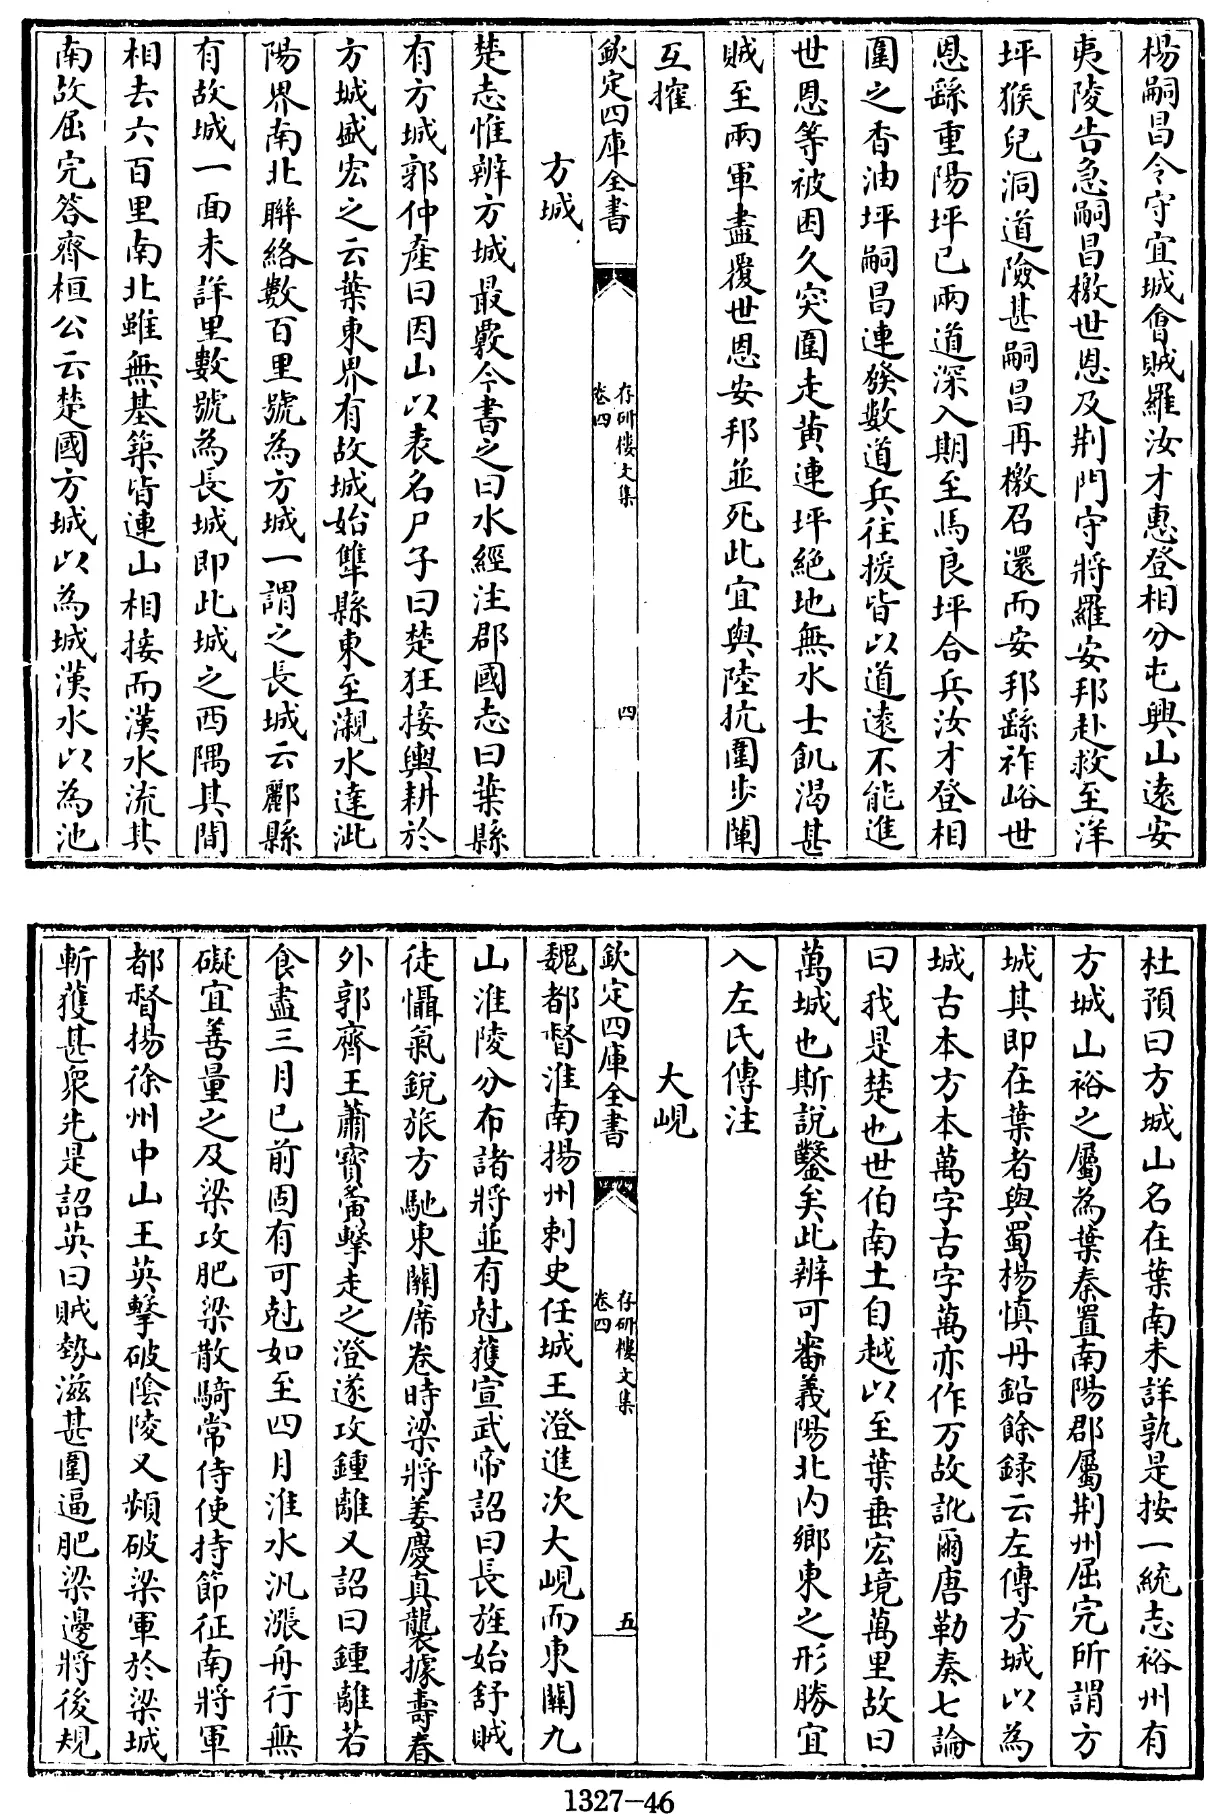 楊嗣昌令守宜城會賊羅汝才惠登相分屯興山遠安
夷陵告急嗣昌檄世恩及荆門守將羅安邦赴救至洋
坪猴兒洞道險甚嗣昌再檄召還而安邦繇祚峪世
恩繇重陽坪已兩道深入期至馬良坪合兵汝才登相
圍之香油坪嗣昌連發數道兵往援皆以道遠不能進
世恩等被困久突圍走黄連坪絶地無水士飢渇甚
賊至兩軍盡覆世恩安邦並死此宜與陸抗圍步闡
互搉
欽定四庫全書
存研樓文集
卷四
四
方城
楚志惟辨方城最覈今書之曰水經注郡國志曰葉縣
有方城郭仲産曰因山以表名尸子曰楚狂接輿耕於
方城盛宏之云葉東界有故城始犨縣東至瀙水達泚
陽界南北聯絡數百里號為方城一謂之長城云酈縣
有故城一面未詳里數號為長城即此城之西隅其間
相去六百里南北雖無基築皆連山相接而漢水流其
南故屈完答齊桓公云楚國方城以為城漢水以為池
杜預曰方城山名在葉南未詳孰是按一統志裕州有
方城山裕之屬為葉秦置南陽郡屬荆州屈完所謂方
城其即在葉者與蜀楊慎丹鉛餘録云左傳方城以為
城古本方本萬字古字萬亦作万故訛爾唐勒奏七論
曰我是楚也世伯南土自越以至葉垂宏境萬里故曰
萬城也斯說鑿矣此辨可審義陽北内鄉東之形勝宜
入左氏傳注
大峴
欽定四庫全書
存研樓文集
卷四
五
魏都督淮南揚州刺史任城王澄進次大峴而東關九
山淮陵分布諸將並有尅獲宣武帝詔曰長旌始舒賊
徒懾氣銳旅方馳東關席卷時梁將姜慶真襲據壽春
外郭齊王蕭寶夤擊走之澄遂攻鍾離又詔曰鍾離若
食盡三月已前固有可尅如至四月淮水汎漲舟行無
礙宜善量之及梁攻肥梁散騎常侍使持節征南將軍
都督揚徐州中山王英擊破陰陵又頻破梁軍於梁城
斬獲甚衆先是詔英曰賊勢滋甚圍逼肥梁邊將後規
1327-46